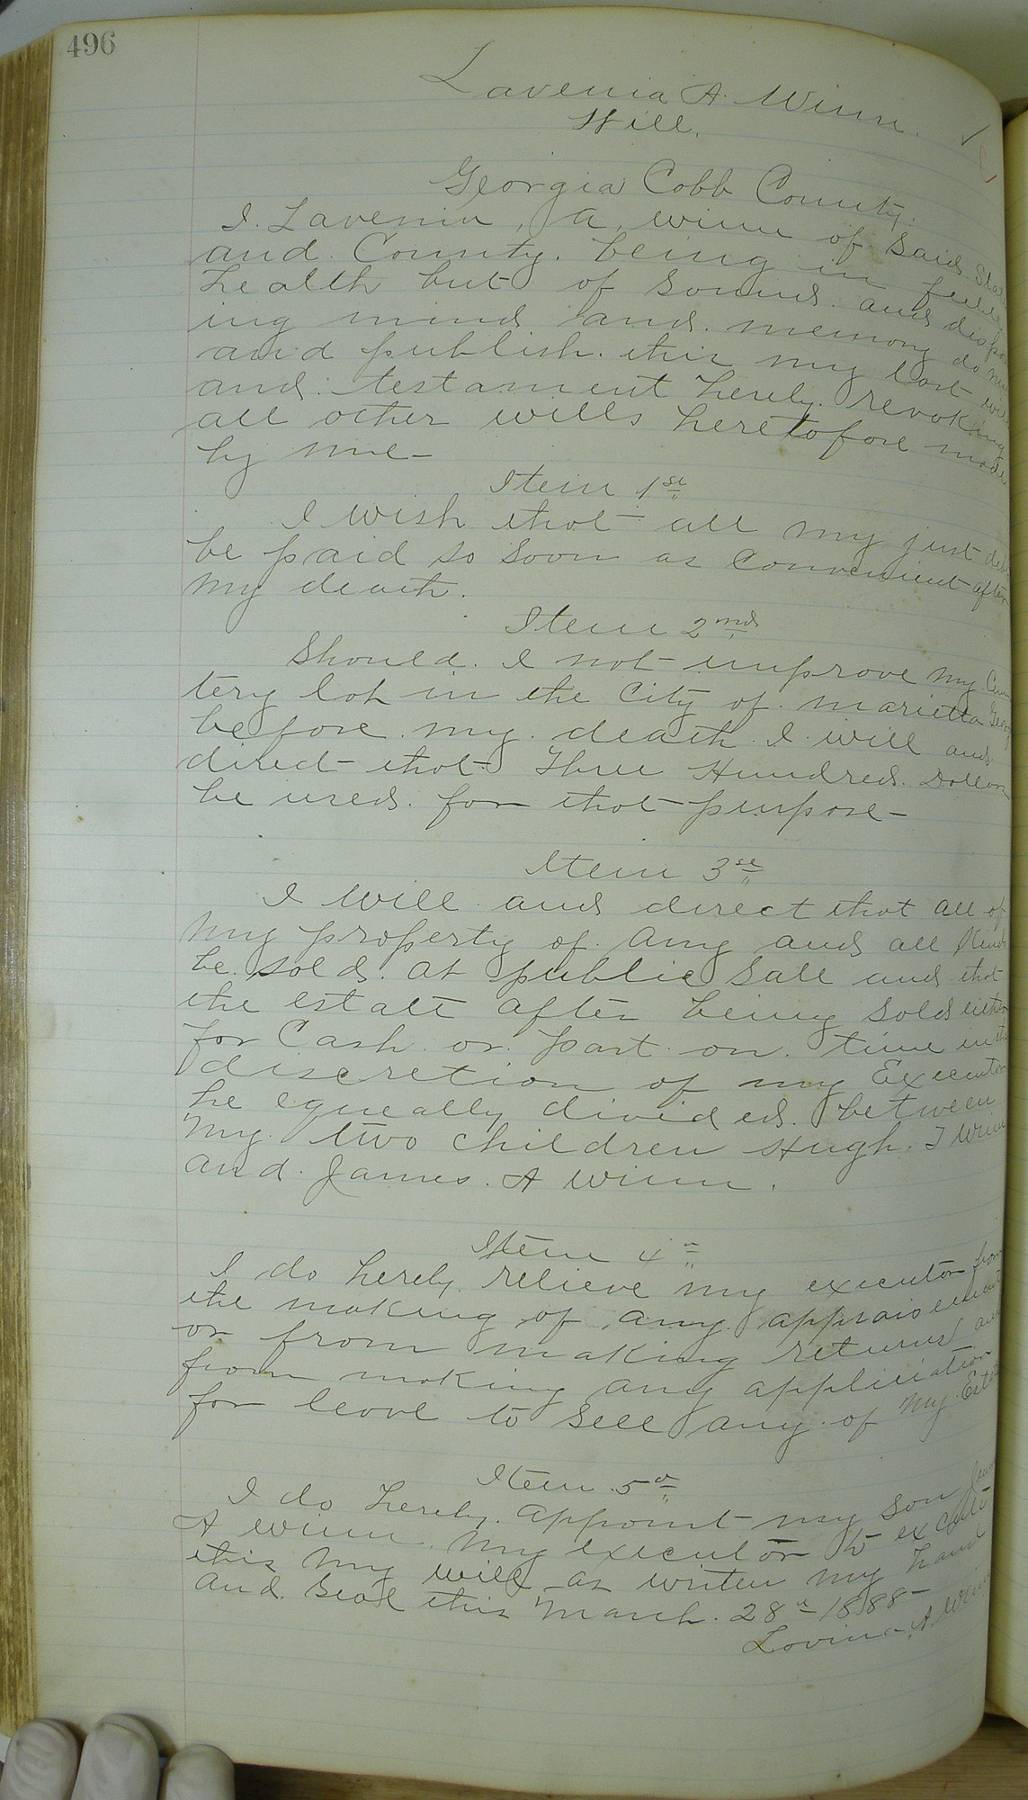 496
Lavenia A. Winn.
Will.
Georgia Cobb County.
I. Lavenia, A, Winn of Said State
and County. being in feeble
health but of Sound. and dispos
ing mind and. memory do make
and publish. this my last will
and. testament hereby. revoking
all other wills heretofore made
by me-
Item 1st
I wish that all my just debts
be paid so Soon as Convenient after
my death.
Item 2nd
Should. I not improve my Ceme
tery lot in the City of. Marietta Georgia
before my. death. I will and
direct that Three Hundred. Dollars
be used. for that purpose-
Item 3rd
I will and direct that all of
my property of any and all Kinds
be. Sold. at public Sale and that
the estate after being Sold either
for Cash or. part on. time in the
discretion of my Executor
be equeally divided. between
my. two children Hugh. T Winn
and. James. A Winn.
Item 4th
I do hereby relieve my executor from
the making of any appraisement
or from making returns and
from making any appliciation
for leave to Sell any. of my Estate
Item 5th
I do hereby. appoint my Son James
A Winn. my executor to execute
this my will as writen my hand
and. Seal this March. 28th 1888-
Lovina. A Winn